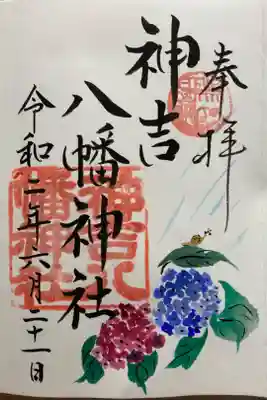 奉拝
神吉
八幡神社
令和二年六月二十一日
神吉八
幡神社